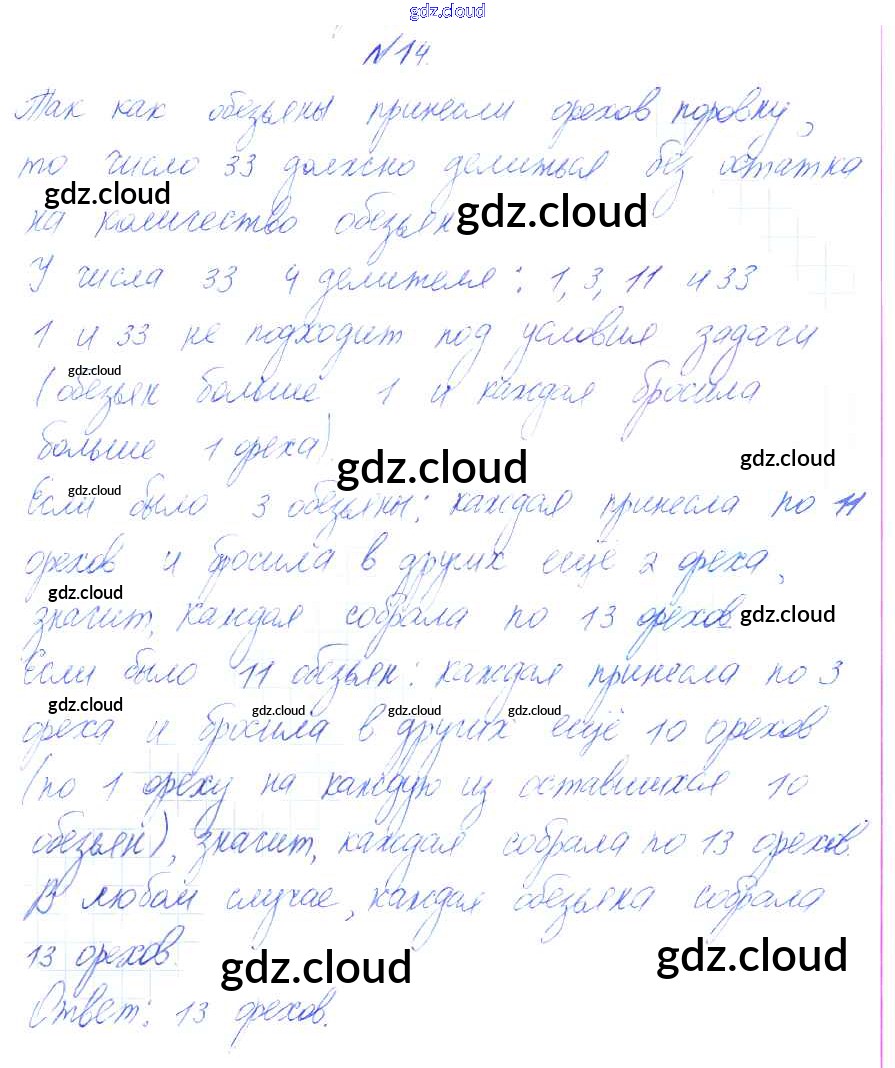 gdz.cloud
N14.
Так как обезьяны принесли орехов поровну,
то число 33 должно делиться без остатка
gdz.cloud
на количество обезьян
gdz.cloud
У числа 33 4 делителя: 1, 3, 11 и 33
1 и 33 не подходит под условия задачи
gdz.cloud
(обезьян больше 1 и каждая бросила
больше 1 ореха).
gdz.cloud gdz.cloud
gdz.cloud
Если было 3 обезьяны: каждая принесла по 11
орехов и бросила в других ещё 2 ореха,
gdz.cloud
значит, каждая собрала по 13 орехов.
gdz.cloud
Если было 11 обезьян: каждая принесла по 3
gdz.cloud gdz.cloud gdz.cloud gdz.cloud
ореха и бросила в других ещё 10 орехов
(по 1 ореху на каждую из оставшихся 10
обезьян), значит, каждая собрала по 13 орехов.
В любом случае, каждая обезьяна собрала
13 орехов.
gdz.cloud gdz.cloud
Ответ: 13 орехов.